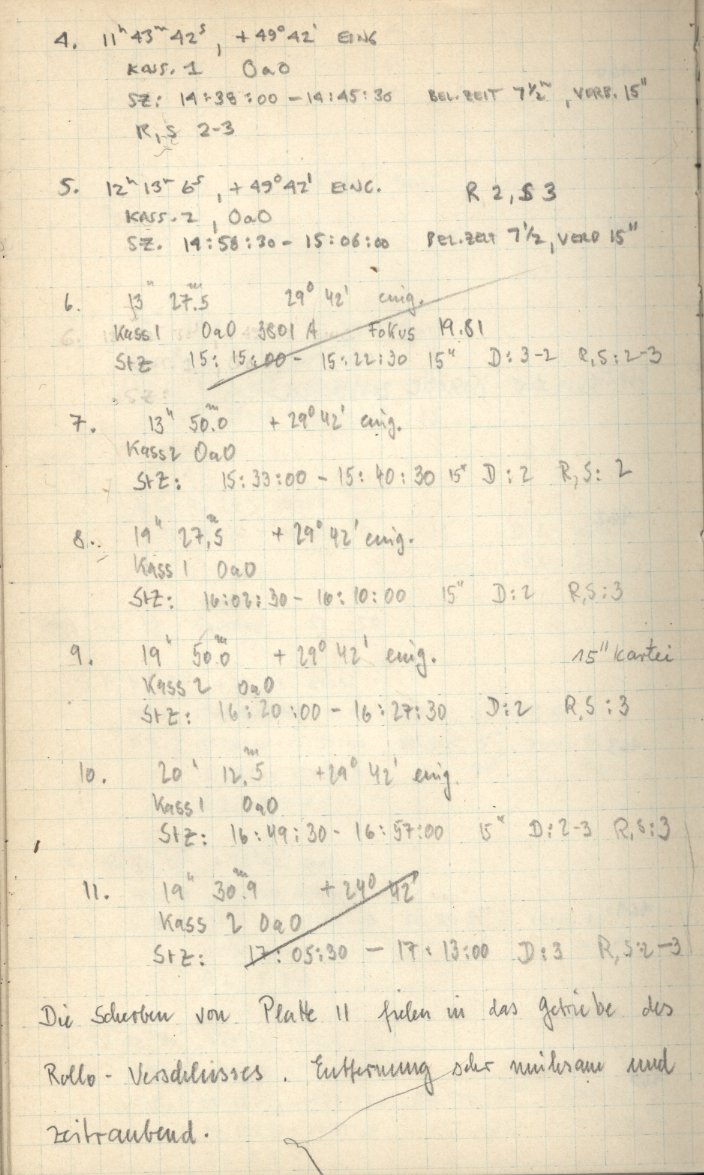 4. 11ʰ 43ᵐ 42ˢ, +49° 42' EING
KASS. 1 OaO
SZ: 14:38:00 – 14:45:30 BEL.ZEIT 7½ᵐ, VERB. 15"
R, S 2-3
5. 12ʰ 13ᵐ 6ˢ, +49° 42' EING. R 2, S 3
KASS. 2, OaO
SZ. 14:58:30 – 15:06:00 BEL.ZEIT 7½, VERB 15"
6. 13ʰ 27.ᵐ5 29° 42' einig.
Kass 1 OaO 3801 A Fokus 19.81
StZ 15:15:00 – 15:22:30 15" D: 3-2 R,S: 2-3
7. 13ʰ 50.ᵐ0 +29° 42' einig.
Kass 2 OaO
StZ: 15:33:00 – 15:40:30 15" D: 2 R,S: 2
8. 19ʰ 27,ᵐ5 +29° 42' einig.
Kass 1 OaO
StZ: 16:02:30 – 16:10:00 15" D: 2 R,S: 3
9. 19ʰ 50.ᵐ0 +29° 42' einig. 15" Kartei
Kass 2 OaO
StZ: 16:20:00 – 16:27:30 D: 2 R,S: 3
10. 20ʰ 12,ᵐ5 +29° 42' einig.
Kass 1 OaO
StZ: 16:49:30 – 16:57:00 15" D: 2-3 R,S: 3
11. 19ʰ 30.ᵐ9 +24° 42'
Kass 2 OaO
StZ: 17:05:30 – 17:13:00 D: 3 R,S: 2-3
Die Scherben von Platte 11 fielen in das Getriebe des
Rollo-Verschlusses. Entfernung sehr mühsam und
zeitraubend.